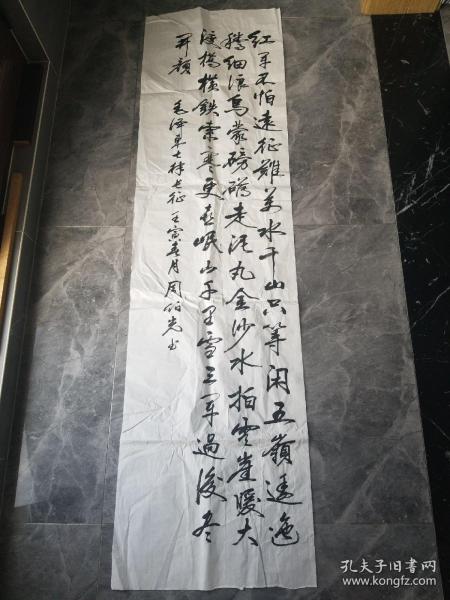 红军不怕遠征難萬水千山只等闲五嶺逶迤
腾细浪烏蒙磅礴走泥丸金沙水拍雲崖暖大
渡橋横鉄索寒更喜岷山千里雪三军過後尽
开颜 毛泽东七律长征 壬寅春月周伯光书
孔夫子旧书网
www.kongfz.com